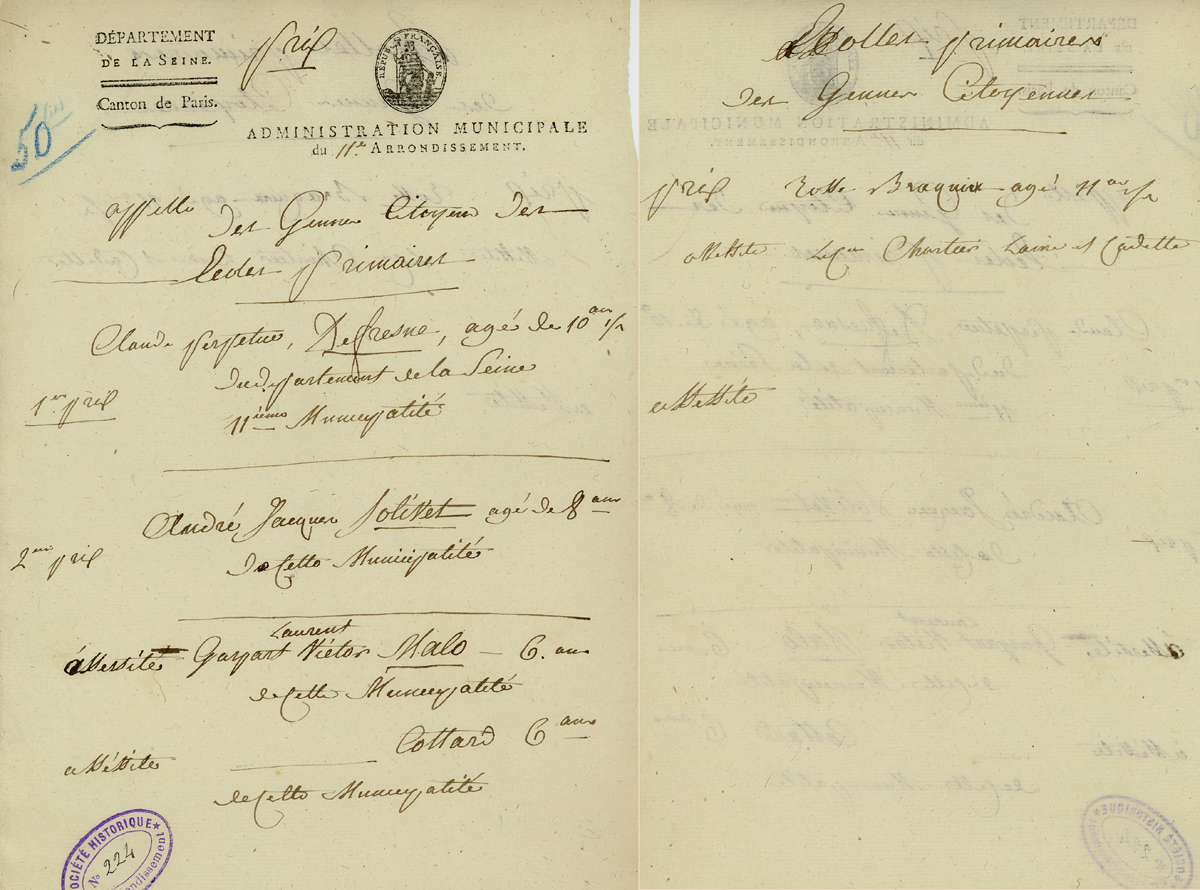 DÉPARTEMENT
DE LA SEINE.
Canton de Paris.
prix
RÉPUBLIQUE FRANÇAISE
50
ADMINISTRATION MUNICIPALE
du 11e ARRONDISSEMENT.
appelle des Gennes Citoyens des
Ecoles primaires
Claude perpetue, Defresne, agé de 10 ans 1/2
du departement de la Seine
1er prix
11ieme Municipalité
André Jacques Jolivet agé de 8 ans
2me prix
de Cette Municipalité
Laurent
accessité Gaspart Victor Malo — 6. ans
de Cette Municipalité
Cottard 6 ans
accessite
de Cette Municipalité
SOCIÉTÉ HISTORIQUE
No 224
Ecolles primaires
des Gennes Citoyennes
prix Rose Braquix agé 11 ans 1/2
accessite Les Chartier Laine et Cadette
accessite